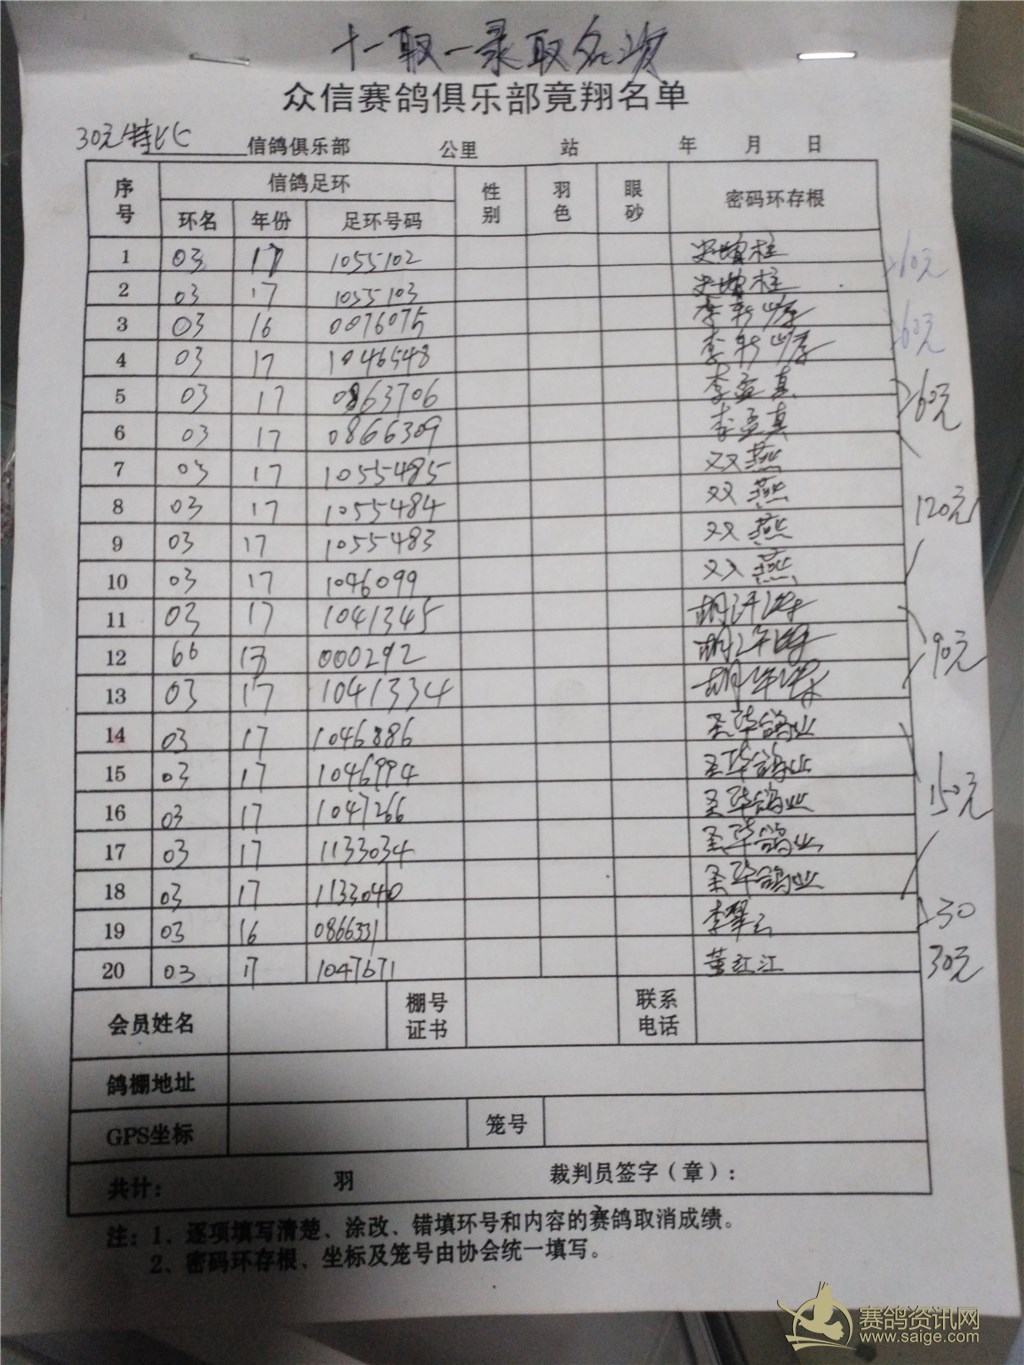 十一取一录取名次
众信赛鸽俱乐部竟翔名单
30元特比 信鸽俱乐部 公里 站 年 月 日
序号 信鸽足环 性别 羽色 眼砂 密码环存根
环名 年份 足环号码
1 03 17 1055102
2 03 17 1055103 60元
3 03 16 0076075
4 03 17 1046548 60元
5 03 17 0863706 李孟真
6 03 17 0866309 李孟真 60元
7 03 17 1055485 双燕
8 03 17 1055484 双燕 120元
9 03 17 1055483 双燕
10 03 17 1046099 双燕
11 03 17 1041345
12 66 000292 90元
13 03 17 1041334
14 03 17 1046886 圣华鸽业
15 03 17 1046994 圣华鸽业
16 03 17 1047266 圣华鸽业 150元
17 03 17 1133034 圣华鸽业
18 03 17 1133040 圣华鸽业
19 03 16 0866331 李翠云 30
20 03 17 1047671 董红江 30元
会员姓名 棚号证书 联系电话
鸽棚地址
GPS坐标 笼号
共计: 羽 裁判员签字(章):
注:1、逐项填写清楚、涂改、错填环号和内容的赛鸽取消成绩。
2、密码环存根、坐标及笼号由协会统一填写。
赛鸽资讯网
www.saige.com